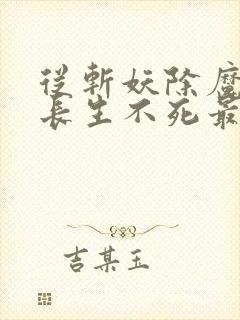 從斬妖除魔
長生不死最
吉某玉